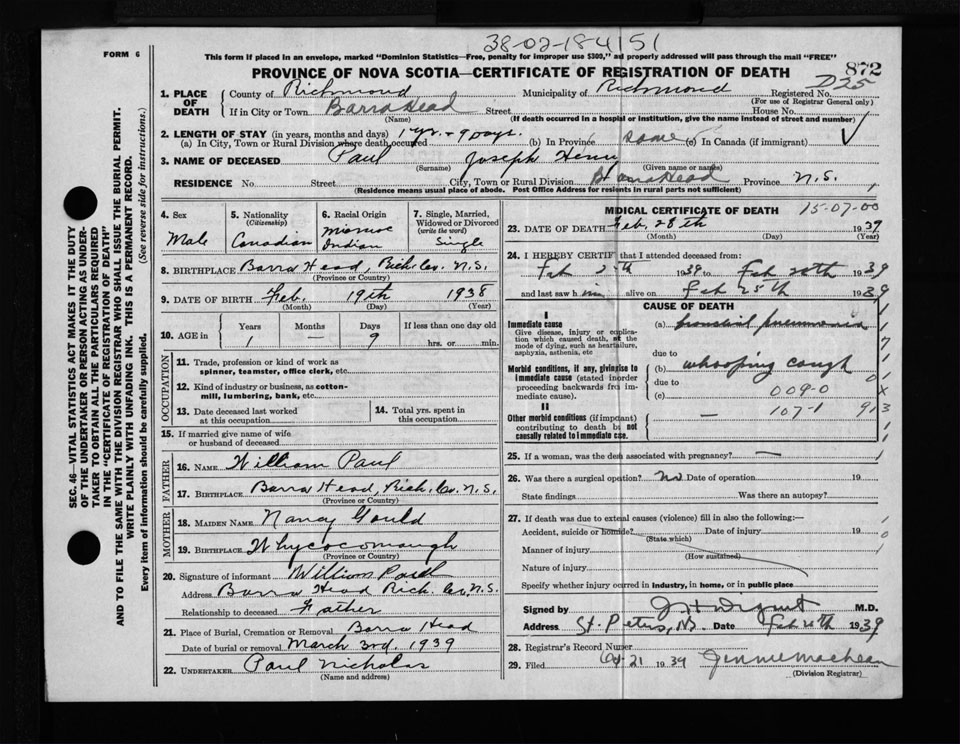 38-02-184151
FORM 6
This form if placed in an envelope, marked "Dominion Statistics—Free, penalty for improper use $300," and properly addressed will pass through the mail "FREE"
872
PROVINCE OF NOVA SCOTIA—CERTIFICATE OF REGISTRATION OF DEATH
D25
1. PLACE OF DEATH
County of Richmond Municipality of Richmond Registered No.
(For use of Registrar General only)
If in City or Town Barra Head Street House No.
(Name) (If death occurred in a hospital or institution, give the name instead of street and number)
2. LENGTH OF STAY (in years, months and days) 1 yr. + 9 Days.
(a) In City, Town or Rural Division where death occurred (b) In Province same (c) In Canada (if immigrant)
3. NAME OF DECEASED Paul Joseph Henry
(Surname) (Given name or names)
RESIDENCE No. Street City, Town or Rural Division Barra Head Province N.S.
(Residence means usual place of abode. Post Office Address for residents in rural parts not sufficient)
SEC. 46—VITAL STATISTICS ACT MAKES IT THE DUTY
OF THE UNDERTAKER OR PERSON ACTING AS UNDER-
TAKER TO OBTAIN ALL THE PARTICULARS REQUIRED
IN THE "CERTIFICATE OF REGISTRATION OF DEATH"
AND TO FILE THE SAME WITH THE DIVISION REGISTRAR WHO SHALL ISSUE THE BURIAL PERMIT.
WRITE PLAINLY WITH UNFADING INK. THIS IS A PERMANENT RECORD.
Every item of information should be carefully supplied. (See reverse side for instructions.)
4. Sex
Male
5. Nationality
(Citizenship)
Canadian
6. Racial Origin
Micmac
Indian
7. Single, Married,
Widowed or Divorced
(write the word)
Single
8. BIRTHPLACE Barra Head, Rich. Co. N.S.
(Province or Country)
9. DATE OF BIRTH Feb. 19th 1938
(Month) (Day) (Year)
10. AGE in
Years Months Days If less than one day old
1 — 9 hrs. or min.
OCCUPATION
11. Trade, profession or kind of work as
spinner, teamster, office clerk, etc.
12. Kind of industry or business, as cotton-
mill, lumbering, bank, etc.
13. Date deceased last worked
at this occupation
14. Total yrs. spent in
this occupation
15. If married give name of wife
or husband of deceased
FATHER
16. NAME William Paul
17. BIRTHPLACE Barra Head, Rich. Co. N.S.
(Province or Country)
MOTHER
18. MAIDEN NAME Nancy Gould
19. BIRTHPLACE Whycocomaugh
(Province or Country)
20. Signature of informant William Paul
Address Barra Head Rich. Co, N.S.
Relationship to deceased Father
21. Place of Burial, Cremation or Removal Barra Head
Date of burial or removal March 3rd, 1939
22. UNDERTAKER Paul Nicholas
(Name and address)
MEDICAL CERTIFICATE OF DEATH 15-07-00
23. DATE OF DEATH Feb. 28th 1939
(Month) (Day) (Year)
24. I HEREBY CERTIFY that I attended deceased from:
Feb 1939 to Feb 1939
and last saw him alive on Feb 25th 1939
CAUSE OF DEATH
I
Immediate cause
Give disease, injury or complica-
tion which caused death, not the
mode of dying, such as heart failure,
asphyxia, asthenia, etc
(a) bronchial pneumonia
due to
Morbid conditions, if any, giving rise to
immediate cause (stated in order
proceeding backwards from im-
mediate cause).
(b) whooping cough
due to
(c) 009-0
II
Other morbid conditions (if important)
contributing to death but not
causally related to immediate cause.
— 107-1 913
25. If a woman, was the death associated with pregnancy? —
26. Was there a surgical operation? No Date of operation 19
State findings Was there an autopsy?
27. If death was due to external causes (violence) fill in also the following:—
Accident, suicide or homicide? Date of injury 19
(State which)
Manner of injury
(How sustained)
Nature of injury
Specify whether injury occurred in industry, in home, or in public place
Signed by M.D.
Address St. Peters, N.S. Date Feb 1939
28. Registrar's Record Number
29. Filed 21 1939 Jennie MacLean
(Division Registrar)